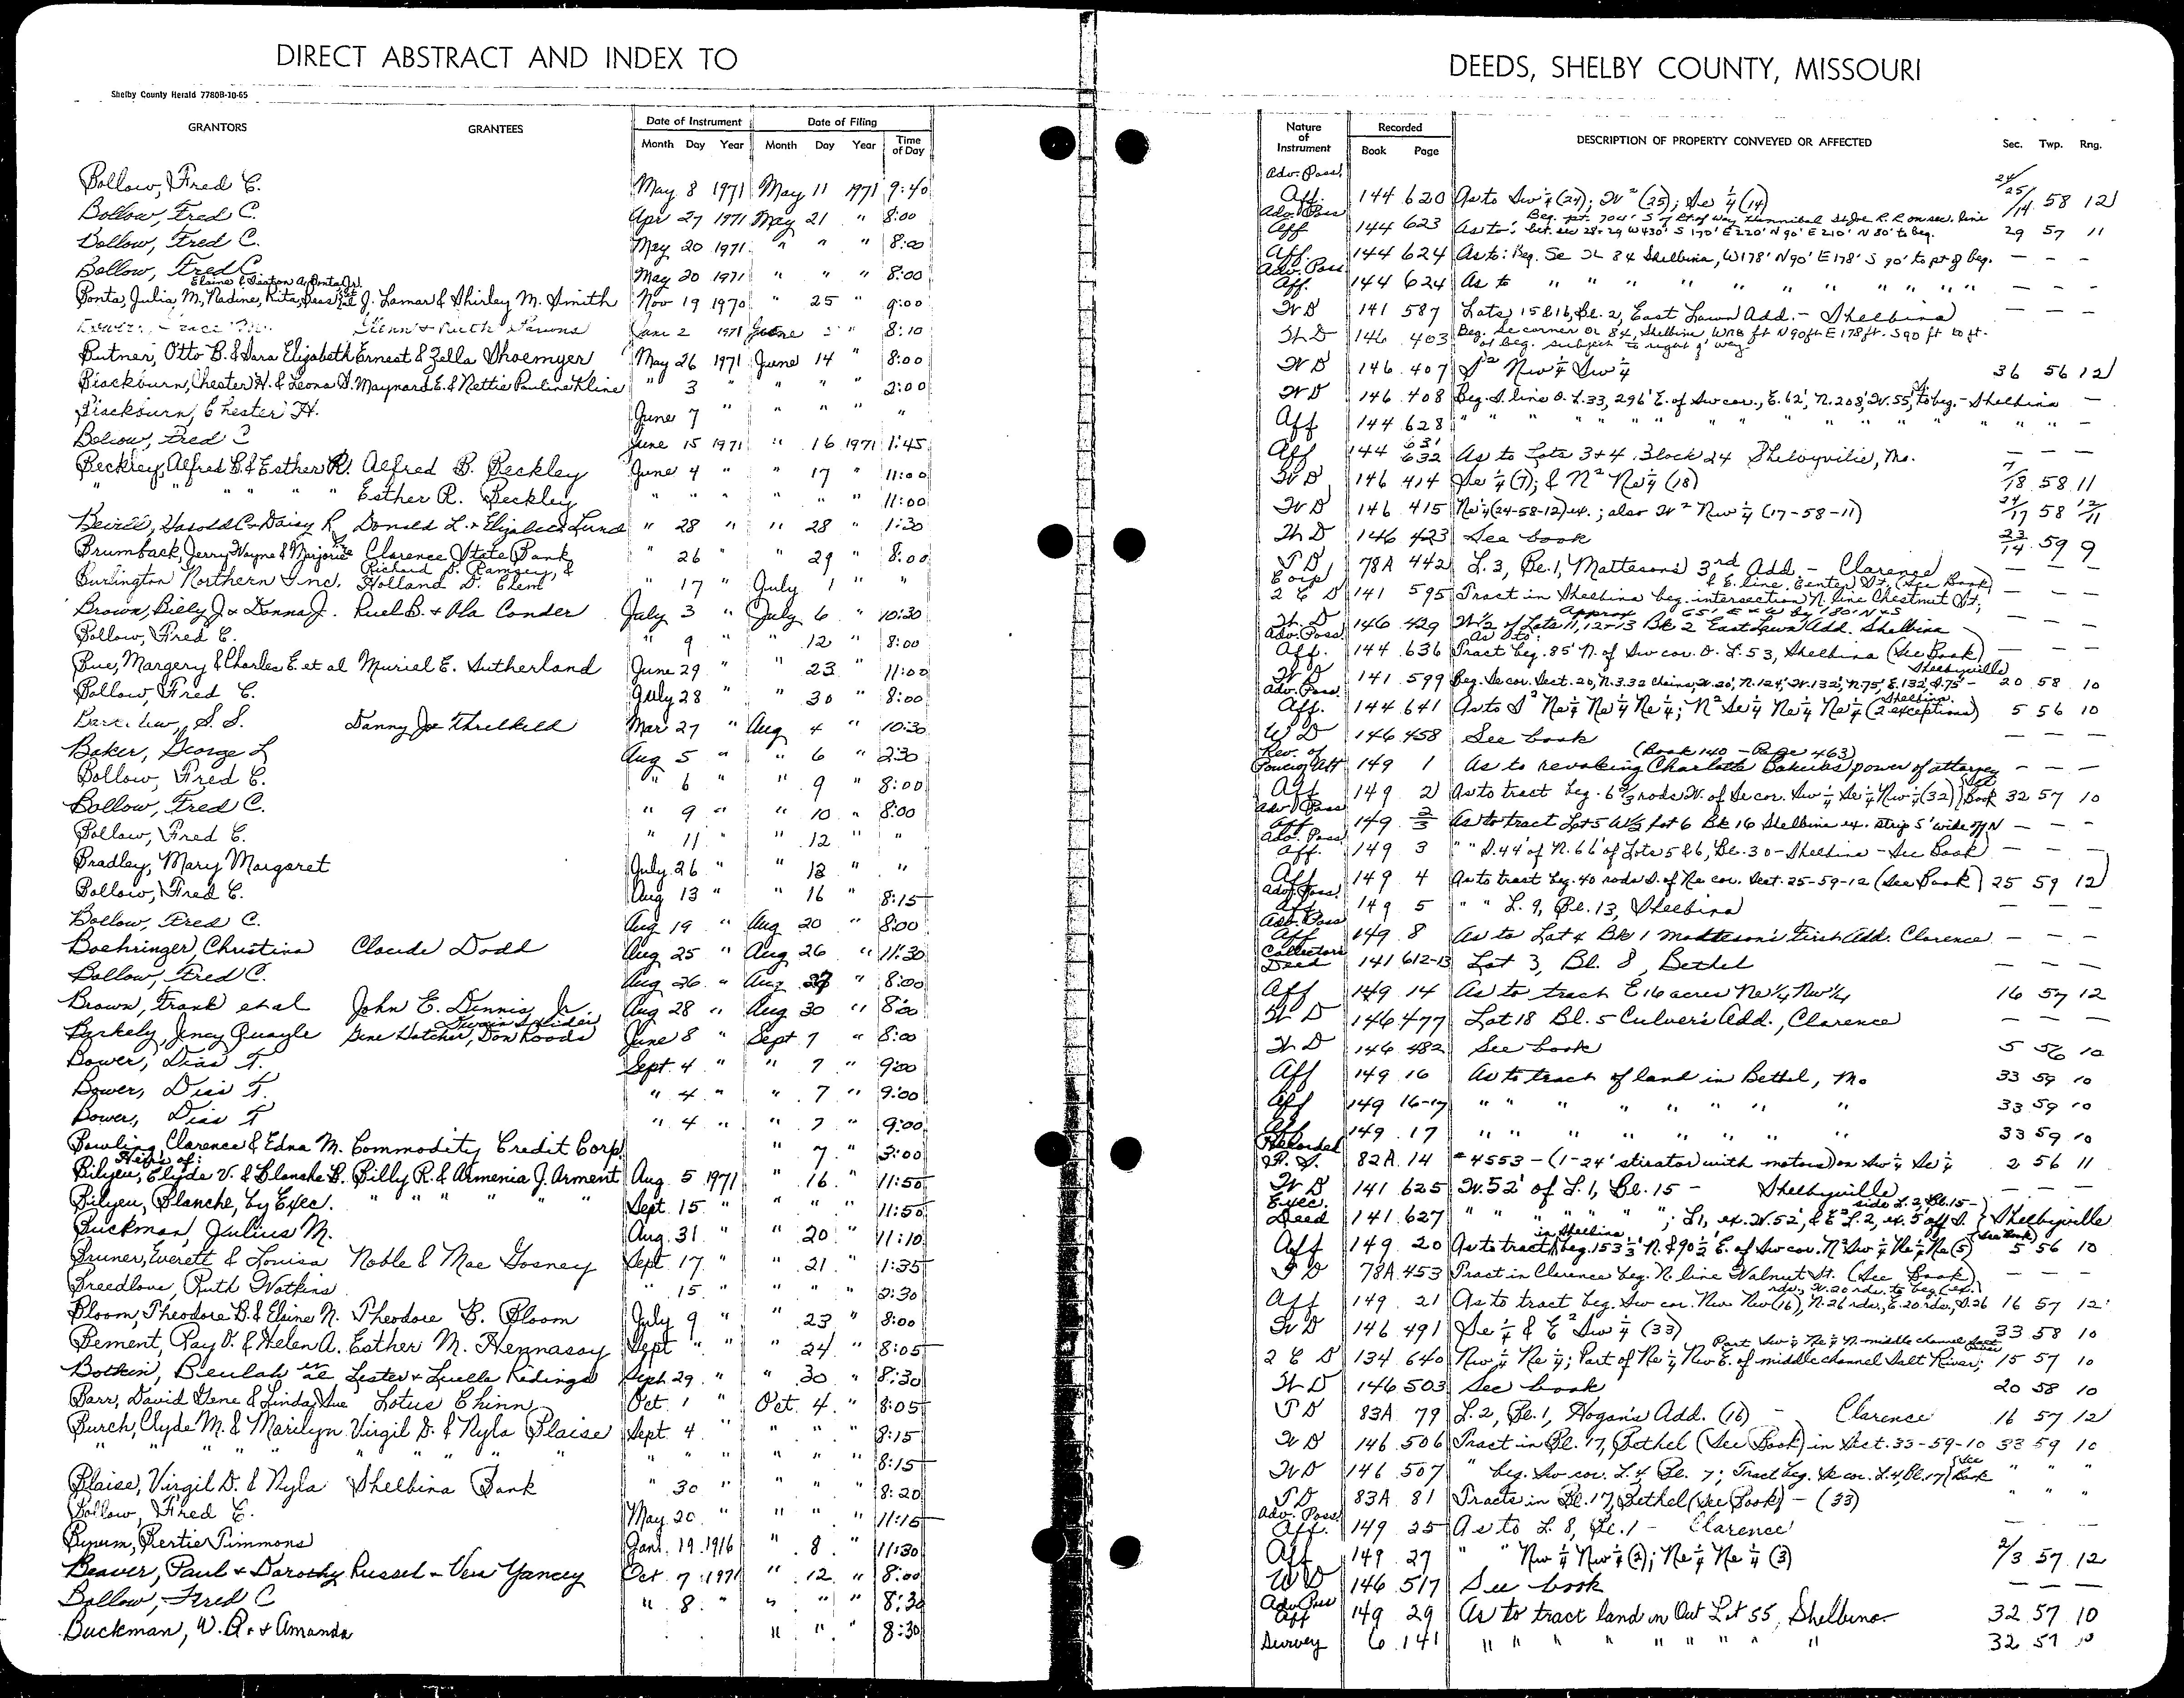 DIRECT ABSTRACT AND INDEX TO
Shelby County Herald 7780B-10-65
GRANTORS GRANTEES Date of Instrument Date of Filing
Month Day Year Month Day Year Time of Day
Bollow, Fred C. May 8 1971 May 11 1971 9:40
Bollow, Fred C. Apr 27 1971 May 21 " 8:00
Bollow, Fred C. May 20 1971 " " " 8:00
Bollow, Fred C. May 20 1971 " " " 8:00
Ponta, Julia M, Nadine, Rita, J. Lamar & Shirley M. Smith Nov 19 1970 " 25 " 9:00
Glenn & Ruth Parsons June 2 1971 June " 8:10
Butner, Otto B. & Sara Elizabeth Ernest & Zella Shoemyer May 26 1971 June 14 " 8:00
Blackburn, Chester H. & Leona D. Maynard E. & Nettie Pauline Kline " 3 " " " " 2:00
Blackburn, Chester H. June 7 " " " " "
Bollow, Fred C June 15 1971 " 16 1971 1:45
Beckley, Alfred B. & Esther R. Alfred B. Beckley June 4 " " 17 " 11:00
" " " " " Esther R. Beckley " " " " " " 11:00
Harold C & Daisy R Donald L. & Elizabeth Lund " 28 " " 28 " 1:30
Brumback, Jerry Wayne & Marjorie Clarence State Bank " 26 " 29 " 8:00
Richard D. Ramsey, &
Burlington Northern Inc. Holland D. Clem " 17 " July 1 " "
Brown, Billy J & Donna J. Ruel B. & Ola Conder July 3 " July 6 " 10:30
Bollow, Fred C. " 9 " 12 " 8:00
Bue, Margery & Charles E. et al Muriel E. Sutherland June 29 " " 23 " 11:00
Bollow, Fred C. July 28 " " 30 " 8:00
S. S. Danny Joe Threlkeld Mar 27 " Aug 4 " 10:30
Baker, George L Aug 5 " " 6 " 2:30
Bollow, Fred C. " 6 " " 9 " 8:00
Bollow, Fred C. " 9 " " 10 " 8:00
Bollow, Fred C. " 11 " " 12 " "
Bradley, Mary Margaret July 26 " " 13 " "
Bollow, Fred C. Aug 13 " " 16 " 8:15
Bollow, Fred C. Aug 19 " Aug 20 " 8:00
Boehringer, Christina Claude Dodd Aug 25 " Aug 26 " 11:30
Bollow, Fred C. Aug 26 " Aug 27 " 8:00
Brown, Frank et al John E. Dennis, Jr. Aug 28 " Aug 30 " 8:00
Barkely, Jency Quayle Gene Hatcher, Don Roods June 8 " Sept 7 " 8:00
Bower, Dias T. Sept. 4 " " 7 " 9:00
Bower, Dias T. " 4 " " 7 " 9:00
Bower, Dias T " 4 " " 7 " 9:00
Bowling Clarence & Edna M. Commodity Credit Corp. " 7 " 3:00
Heirs of:
Bilyeu, Clyde V. & Blanche B. Billy R. & Armenia J. Arment Aug. 5 1971 " 16 " 11:50
Bilyeu, Blanche, by Exec. " " " " " Sept. 15 " " " " 11:50
Buckman, Julius M. Aug. 31 " " 20 " 11:10
Bruner, Everett & Louisa Noble & Mae Gosney Sept. 17 " " 21 " 1:35
Breedlove, Ruth Watkins " 15 " " " " 2:30
Bloom, Theodore B. & Elaine N. Theodore B. Bloom July 9 " " 23 " 8:00
Bement, Ray V. & Helen A. Esther M. Hennasay Sept " " " 24 " 8:05
Botkin, Beulah Lester & Luella Ridings Sept. 29 " " 30 " 8:30
Barr, David Gene & Linda Sue Lotus Chinn Oct. 1 " Oct. 4 " 8:05
Burch, Clyde M. & Marilyn Virgil D. & Nyla Blaise Sept. 4 " " " " 8:15
" " " " " " " " " " " " " " 8:15
Blaise, Virgil D. & Nyla Shelbina Bank " 30 " " " " 8:20
Bollow, Fred C. May 20 " " " " 11:15
Bynum, Bertie Timmons Jan. 19 1916 " 8 " 11:30
Beaver, Paul & Dorothy Russel & Vera Yancey Oct. 7 1971 " 12 " 8:00
Bollow, Fred C " 8 " " " " 8:30
Buckman, W. R. & Amanda " " " 8:30
DEEDS, SHELBY COUNTY, MISSOURI
Nature of Instrument Recorded DESCRIPTION OF PROPERTY CONVEYED OR AFFECTED Sec. Twp. Rng.
Book Page
Adv. Poss.
Aff. 144 620 As to Sw 1/4 (24); W 2 (25); Se 1/4 (14) 24/25/14 58 12
Adv. Poss Beg. pt. 704' S of Rt. of way Hannibal St Joe R.R. on sec. line
Aff 144 623 As to: bet. sec 28 & 29 W 430' S 170' E 220' N 90' E 210' N 80' to beg. 29 57 11
Aff. 144 624 As to: Beg. Se OL 84 Shelbina, W178' N90' E178' S 90' to pt of beg. — — —
Adv. Poss
Aff. 144 624 As to " " " " " " " " " — — —
W D 141 587 Lots 15 & 16, Bl. 2, East Lawn Add. - Shelbina — — —
W D 146 403 Beg. Se corner OL 84, Shelbina, W178 ft N 90 ft E 178 ft. S 90 ft to pt.
of beg. subject to right of way
W D 146 407 S 2 Nw 1/4 Sw 1/4 36 56 12
W D 146 408 Beg. S. line O. L. 33, 296' E. of Sw cor., E. 62', N. 208', W. 55', to beg. - Shelbina —
Aff 144 628 " " " " " " " " " " —
Aff 144 631 632 As to Lots 3 & 4 Block 24 Shelbyville, Mo. — — —
W D 146 414 Se 1/4 (7); & N 2 Ne 1/4 (18) 7/18 58 11
W D 146 415 Ne 1/4 (24-58-12) ex.; also W 2 Nw 1/4 (17-58-11) 24/17 58 12/11
W D 146 423 See book 23/14 59 9
T D 78A 442 L. 3, Bl. 1, Matteson's 3rd Add. - Clarence — — —
Corp & E. line, Center St. (See Book)
2 C D 141 595 Tract in Shelbina beg. intersection N. line Chestnut St; — — —
Approx 65' E & W by 180' N & S
W. D 146 429 W 1/2 of Lots 11, 12 & 13 Bk 2 East Lawn Add. Shelbina — — —
Adv. Poss. As to:
Aff. 144 636 Tract beg. 85' N. of Sw cor. O. L. 53, Shelbina (See Book) — — —
Shelbyville
W D 141 599 Beg. Se cor. Sect. 20, N. 3.32 Chains, W. 20', N. 124', W. 132', N. 75', E. 132', S. 75' - 20 58 10
Adv. Poss. Shelbina
Aff. 144 641 As to S 2 Ne 1/4 Ne 1/4 Ne 1/4; N 2 Se 1/4 Ne 1/4 Ne 1/4 (2 exceptions) 5 56 10
W D 146 458 See book — — —
Rev. of (Book 140 - Page 463)
Power of Att 149 1 As to revoking Charlotte Baker's power of attorney — — —
Aff 149 2 As to tract beg. 6 2/3 rods W. of Se cor. Sw 1/4 Se 1/4 Nw 1/4 (32) Book 32 57 10
Adv. Poss
Aff 149 2/3 As to tract Lot 5 W 1/2 Lot 6 Bk 16 Shelbina ex. strip 5' wide off N — — —
Adv. Poss.
Aff. 149 3 " " S. 44' of N. 66' of Lots 5 & 6, Bl. 30 - Shelbina - See Book — — —
Aff 149 4 As to tract beg. 40 rods S. of Ne cor. Sect. 25-59-12 (See Book) 25 59 12
Adv. Poss.
Aff 149 5 " " L. 9, Bl. 13, Shelbina — — —
Adv. Poss
Aff 149 8 As to Lot 4 Bk 1 Matteson's First Add. Clarence — — —
Collector's Deed 141 612-13 Lot 3, Bl. 8, Bethel — — —
Aff 149 14 As to tract E 16 acres Ne 1/4 Nw 1/4 16 57 12
W D 146 477 Lot 18 Bl. 5 Culver's Add., Clarence — — —
W D 146 482 See book 5 56 10
Aff 149 16 As to tract of land in Bethel, Mo 33 59 10
Aff 149 16-17 " " " " " " " " 33 59 10
Aff 149 17 " " " " " " " " 33 59 10
F. S. 82A 14 #4553 - (1-24' stirator with motors) on Sw 1/4 Se 1/4 2 56 11
W D 141 625 W. 52' of L. 1, Bl. 15 - Shelbyville — — —
Exec. side L. 2, Bl. 15 -
Deed 141 627 " " " " " "; L1, ex. W. 52', & E 2 L. 2, ex. 5' off S. Shelbyville
in Shelbina (See Book)
Aff 149 20 As to tract beg. 153 1/3' N. & 90 1/2' E. of Sw cor. N 2 Sw 1/4 Ne 1/4 Ne (5) 5 56 10
T D 78A 453 Tract in Clarence beg. N. line Walnut St. (See Book) — — —
rds., W. 20 rds. to beg. (ex.
Aff 149 21 As to tract beg. Sw cor. Nw Nw (16), N. 26 rds., E. 20 rds., S. 26 16 57 12
W D 146 491 Se 1/4 & E 2 Sw 1/4 (33) 33 58 10
Part Sw 1/4 Ne 1/4 N. middle channel
2 C D 134 640 Nw 1/4 Ne 1/4; Part of Ne 1/4 Nw E. of middle channel Salt River; 15 57 10
W D 146 503 See book 20 58 10
T D 83A 79 L. 2, Bl. 1, Hogan's Add. (16) - Clarence 16 57 12
W D 146 506 Tract in Bl. 17, Bethel (See Book) in Sect. 33-59-10 33 59 10
W D 146 507 " beg. Sw cor. L. 4 Bl. 7; Tract beg. Se cor. L. 4, Bl. 17 (See Book " " "
T D 83A 81 Tracts in Bl. 17, Bethel (See Book) - (33) " " "
Adv. Poss
Aff. 149 25 As to L. 8, Bl. 1 - Clarence — — —
Aff 149 27 " " Nw 1/4 Nw 1/4 (2); Ne 1/4 Ne 1/4 (3) 2/3 57 12
W D 146 517 See book — — —
Adv. Poss
Aff 149 29 As to tract land in Out Lot 55, Shelbina 32 57 10
Survey 6 141 " " " " " " " " 32 57 10